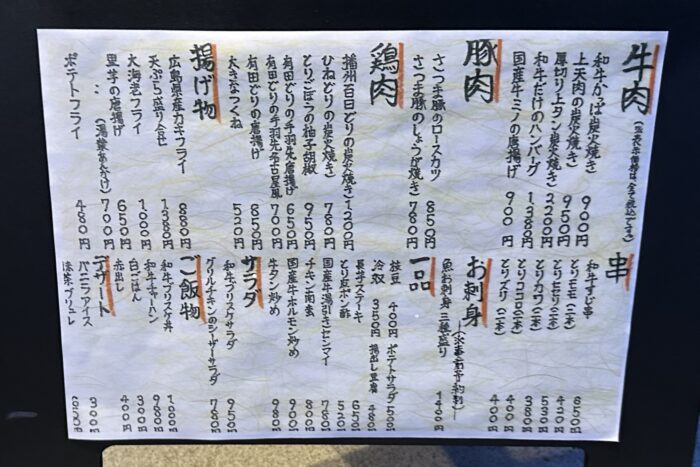 牛肉
（※表示価格は、全て税込です）
和牛かっぱ炭火焼き 900円
上天肉の炭火焼き 950円
厚切り上タン炭火焼き 2200円
和牛だけのハンバーグ 1380円
国産牛ミノの唐揚げ 900円
豚肉
さつま豚のロースカツ 850円
さつま豚のしょうが焼き 780円
鶏肉
播州百日どりの炭火焼き 1200円
ひねどりの炭火焼き 780円
とりごぼうの柚子胡椒 950円
有田どりの手羽先唐揚げ 650円
有田どりの手羽先名古屋風 700円
有田どりの唐揚げ 850円
大きなつくね 550円
揚げ物
広島県産カキフライ 880円
天ぷら盛り合せ 1380円
大海老フライ 1000円
里芋の唐揚げ 650円
〃 （湯葉あんかけ） 700円
ポテトフライ 480円
串
和牛すじ串 650円
とりモモ（二本） 420円
とりセセリ（二本） 530円
とりカワ（二本） 380円
とりココロ（二本） 400円
とりズリ（二本） 400円
お刺身
（火事前予約制）
魚お刺身 三種盛り 1400円
一品
枝豆 400円 ポテトサラダ 500円
冷奴 350円 揚出し豆腐 480円
長芋ステーキ 650円
とり皮ポン酢 520円
国産牛湯引きセンマイ 780円
チキン南蛮 800円
国産牛ホルモン炒め 980円
牛タン炒め 980円
サラダ
和牛ブリスケサラダ 950円
グリルチキンのシーザーサラダ 780円
ご飯物
和牛ブリスケ丼 1000円
和牛チャーハン 980円
白ごはん 300円
赤出し 400円
デザート
バニラアイス 300円
抹茶ブリュレ